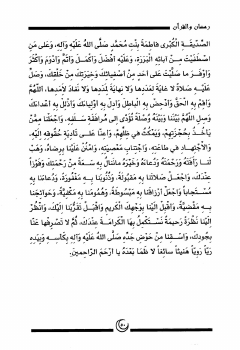 رمضان والقرآن
الصِّدِّيقَةِ الْكُبْرَى فَاطِمَةَ بِنْتِ مُحَمَّدٍ صَلَّى اللهُ عَلَيْهِ وَآلِهِ، وَعَلَى مَنِ
اصْطَفَيْتَ مِنْ آبَائِهِ الْبَرَرَةِ، وَعَلَيْهِ أَفْضَلَ وَأَكْمَلَ وَأَتَمَّ وَأَدْوَمَ وَأَكْثَرَ
وَأَوْفَرَ مَا صَلَّيْتَ عَلَى أَحَدٍ مِنْ أَصْفِيَائِكَ وَخِيَرَتِكَ مِنْ خَلْقِكَ، وَصَلِّ
عَلَيْهِ صَلَاةً لَا غَايَةَ لِعَدَدِهَا وَلَا نِهَايَةَ لِمَدَدِهَا وَلَا نَفَادَ لِأَمَدِهَا، اَللَّهُمَّ
وَأَقِمْ بِهِ الْحَقَّ وَأَدْحِضْ بِهِ الْبَاطِلَ وَأَدِلْ بِهِ أَوْلِيَاءَكَ وَأَذْلِلْ بِهِ أَعْدَاءَكَ
وَصِلِ اللَّهُمَّ بَيْنَنَا وَبَيْنَهُ وُصْلَةً تُؤَدِّى إِلَى مُرَافَقَةِ سَلَفِهِ، وَاجْعَلْنَا مِمَّنْ
يَأْخُذُ بِحُجْزَتِهِمْ، وَيَمْكُثُ فِي ظِلِّهِمْ، وَأَعِنَّا عَلَى تَأْدِيَةِ حُقُوقِهِ إِلَيْهِ،
وَالْاِجْتِهَادِ فِي طَاعَتِهِ، وَاجْتِنَابِ مَعْصِيَتِهِ، وَامْنُنْ عَلَيْنَا بِرِضَاهُ، وَهَبْ
لَنَا رَأْفَتَهُ وَرَحْمَتَهُ وَدُعَاءَهُ وَخَيْرَهُ مَا نَنَالُ بِهِ سَعَةً مِنْ رَحْمَتِكَ وَفَوْزًا
عِنْدَكَ، وَاجْعَلْ صَلَاتَنَا بِهِ مَقْبُولَةً، وَذُنُوبَنَا بِهِ مَغْفُورَةً، وَدُعَاءَنَا بِهِ
مُسْتَجَابًا وَاجْعَلْ أَرْزَاقَنَا بِهِ مَبْسُوطَةً، وَهُمُومَنَا بِهِ مَكْفِيَّةً، وَحَوَائِجَنَا
بِهِ مَقْضِيَّةً، وَأَقْبِلْ إِلَيْنَا بِوَجْهِكَ الْكَرِيمِ وَاقْبَلْ تَقَرُّبَنَا إِلَيْكَ، وَانْظُرْ
إِلَيْنَا نَظْرَةً رَحِيمَةً نَسْتَكْمِلُ بِهَا الْكَرَامَةَ عِنْدَكَ، ثُمَّ لَا تَصْرِفْهَا عَنَّا
بِجُودِكَ، وَاسْقِنَا مِنْ حَوْضِ جَدِّهِ صَلَّى اللهُ عَلَيْهِ وَآلِهِ بِكَأْسِهِ وَبِيَدِهِ
رَيًّا رَوِيًّا هَنِيئًا سَائِغًا لَا ظَمَأَ بَعْدَهُ يَا أَرْحَمَ الرَّاحِمِينَ.